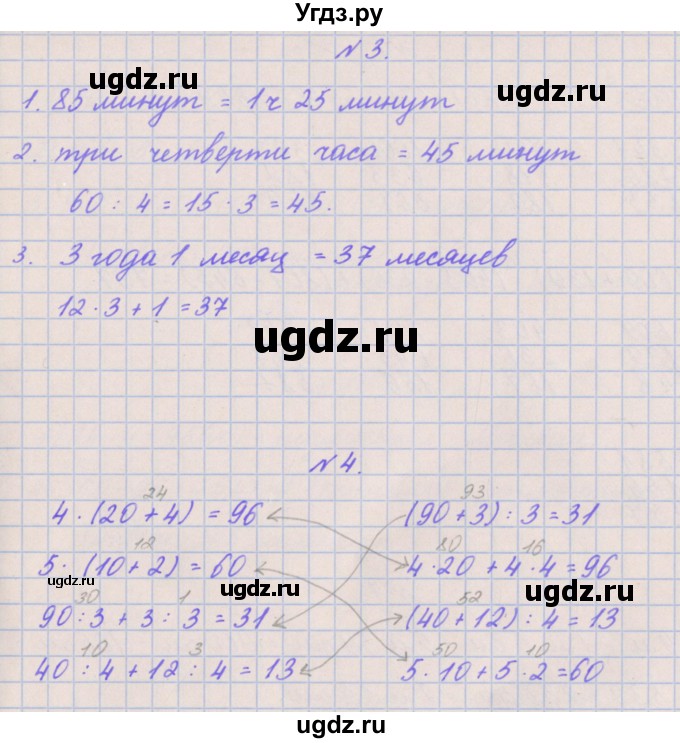 Угдз.ру
№3.
ugdz.ru ugdz.ru
1. 85 минут = 1ч 25 минут
2. три четверти часа = 45 минут
60 : 4 = 15 · 3 = 45.
3. 3 года 1 месяц = 37 месяцев
12 · 3 + 1 = 37
ugdz.ru
№4.
24 93
4 · (20 + 4) = 96 (90 + 3) : 3 = 31
ugdz.ru
12 80 16
5 · (10 + 2) = 60 4 · 20 + 4 · 4 = 96
ugdz.ru ugdz.ru
30 1 52
90 : 3 + 3 : 3 = 31 (40 + 12) : 4 = 13
10 3 50 10
40 : 4 + 12 : 4 = 13 5 · 10 + 5 · 2 = 60
ugdz.ru